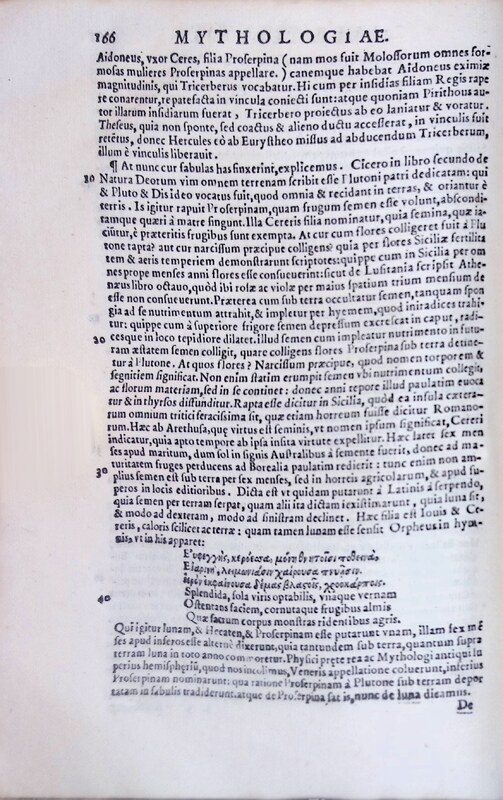 166 MYTHOLOGIAE.
Aidoneus, vxor Ceres, filia Proserpina (nam mos fuit Molossorum omnes for-
mosas mulieres Proserpinas appellare.) canemque habebat Aidoneus eximiæ
magnitudinis, qui Tricerberus vocabatur. Hi cum per insidias filiam Regis rape
re conarentur, re patefacta in vincula coniecti sunt: atque quoniam Pirithous au-
ctor illarum insidiarum fuerat, Tricerbero proiectus ab eo laniatur & voratur.
Theseus, quia non sponte, sed coactus & alieno ductu accesserat, in vinculis fuit
retētus, donec Hercules eò ab Eurystheo missus ad abducendum Tricerberum,
illum è vinculis liberauit.
¶ At nunc cur fabulas has finxerint, explicemus. Cicero in libro secundo de
10 Natura Deorum vim omnem terrenam scribit esse Plutoni patri dedicatam: qui
& Pluto & Dis ideo vocatus fuit, quod omnia & recidant in terras, & oriantur è
terris. Is igitur rapuit Proserpinam, quam frugum semen esse volunt, absconditamque quæri à matre fingunt. Illa Cereris filia nominatur, quia semina, quæ ia-
ciūtur, è præteritis frugibus sunt exempta. At cur cum flores colligeret fuit à Plu
tone rapta? aut cur narcissum præcipue colligens? quia per flores Siciliæ fertilita
tem & aeris temperiem demonstrarunt scriptores: quippe cum in Sicilia per om
nes prope menses anni flores esse consueuerint: sicut de Lusitania scripsit Athe-
næus libro octauo, quòd ibi rosæ ac violæ per maius spatium trium mensium de
esse non consueuerunt. Præterea cum sub terra occultatur semen, tanquam spon
gia ad se nutrimentum attrahit, & impletur per hyemem, quod in radices trahi-
tur: quippe cum à superiore frigore semen depressum excrescat in caput, radi-
20 cesque in loco tepidiore dilatet. illud semen cum impleatur nutrimento in futu-
ram æstatem semen colligit, quare colligens flores Proserpina sub terra detine-
tur à Plutone. At quos flores? Narcissum præcipue, quod nomen torporem &
segnitiem significat. Non enim statim erumpit semen vbi nutrimentum collegit,
ac florum materiam, sed in se continet: donec anni tepore illud paulatim euoca
tur & in thyrsos diffunditur. Rapta esse dicitur in Sicilia, quòd ea insula cætera-
rum omnium tritici feracissima sit, quæ etiam horreum fuisse dicitur Romano-
rum. Hæc ab Arethusa, que virtus est seminis, vt nomen ipsum significat, Cereri
indicatur, quia apto tempore ab ipsa insita virtute expellitur. Hæc latet sex men
ses apud maritum, dum sol in signis Australibus à semente fuerit, donec ad ma-
turitatem fruges perducens ad Borealia paulatim redierit: tunc enim non am-
30 plius semen est sub terra per sex menses, sed in horreis agricolarum, & apud su-
peros in locis editioribus. Dicta est vt quidam putarunt à Latinis à serpendo,
quia semen per terram serpat, quam alii ita dictam existimarunt, quia luna sit,
& modo ad dexteram, modo ad sinistram declinet. Hæc filia est Iouis & Ce-
reris, caloris scilicet ac terræ: quam tamen lunam esse sensit Orpheus in hym-
nis, vt in his apparet:
Splendida, sola viris optabilis, vnaque vernam
40 Ostentans faciem, cornutaque frugibus almis
Quæ sacrum corpus monstras ridentibus agris.
Qui igitur lunam, & Hecaten, & Proserpinam esse putarunt vnam, illam sex mē
ses apud inferos esse alternè dixerunt, quia tantundem sub terra, quantum supra
terram luna in toto anno commoretur. Physici prætereà ac Mythologi antiqui su
perius hemisphęriū, quod nos incolimus, Veneris appellatione coluerunt, inferius
Proserpinam nominarunt: qua ratione Proserpinam à Plutone sub terram depor
tatam in fabulis tradiderunt. atque de Proserpina sat is, nunc de luna dicamus.
De